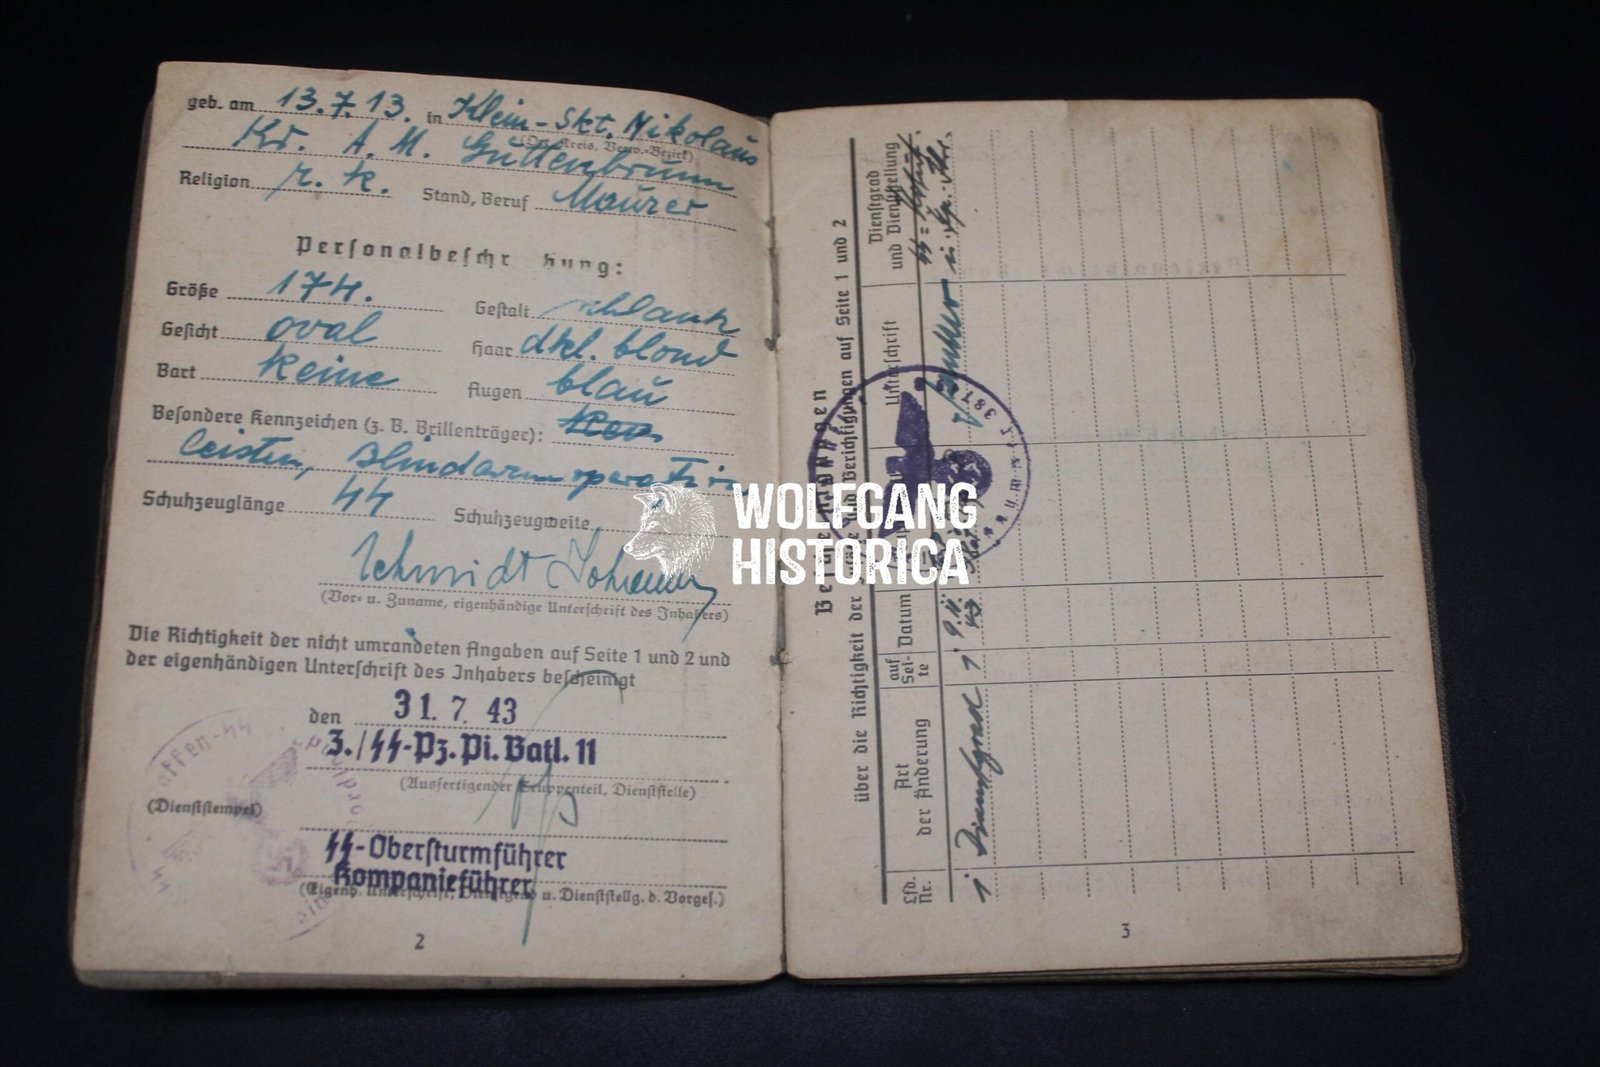 geb. am 13.7.13. in Klein-Skt. Nikolaus
(Ort, Kreis, Verw.-Bezirk)
Kr. A. M. Guttenbrunn
Religion r. k. Stand, Beruf Maurer
Personalbeschr hung:
Größe 174. Gestalt schlank
Gesicht oval Haar dkl. blond
Bart keine Augen blau
Besondere Kennzeichen (z. B. Brillenträger):
leisten, Blindarmoperation
Schuhzeuglänge 44 Schuhzeugweite
Schmidt Johann
(Vor- u. Zuname, eigenhändige Unterschrift des Inhabers)
Die Richtigkeit der nicht umrandeten Angaben auf Seite 1 und 2 und
der eigenhändigen Unterschrift des Inhabers bescheinigt
den 31. 7. 43
3./SS-Pz.Pi.Batl.11
(Ausfertigender Truppenteil, Dienststelle)
Waffen-SS
(Dienststempel)
SS-Obersturmführer
Kompanieführer
(Eigenh. Unterschrift, Dienstgrad u. Dienststellg. d. Vorges.)
2
WOLFGANG
HISTORICA
über die Richtigkeit der und Berichtigungen auf Seite 1 und 2
Lfd. Nr.
Art der Änderung
auf Seite
Datum
Unterschrift
Dienstgrad und Dienststellung
1 Dienstgrad 1 9.11. 43
SS=
3